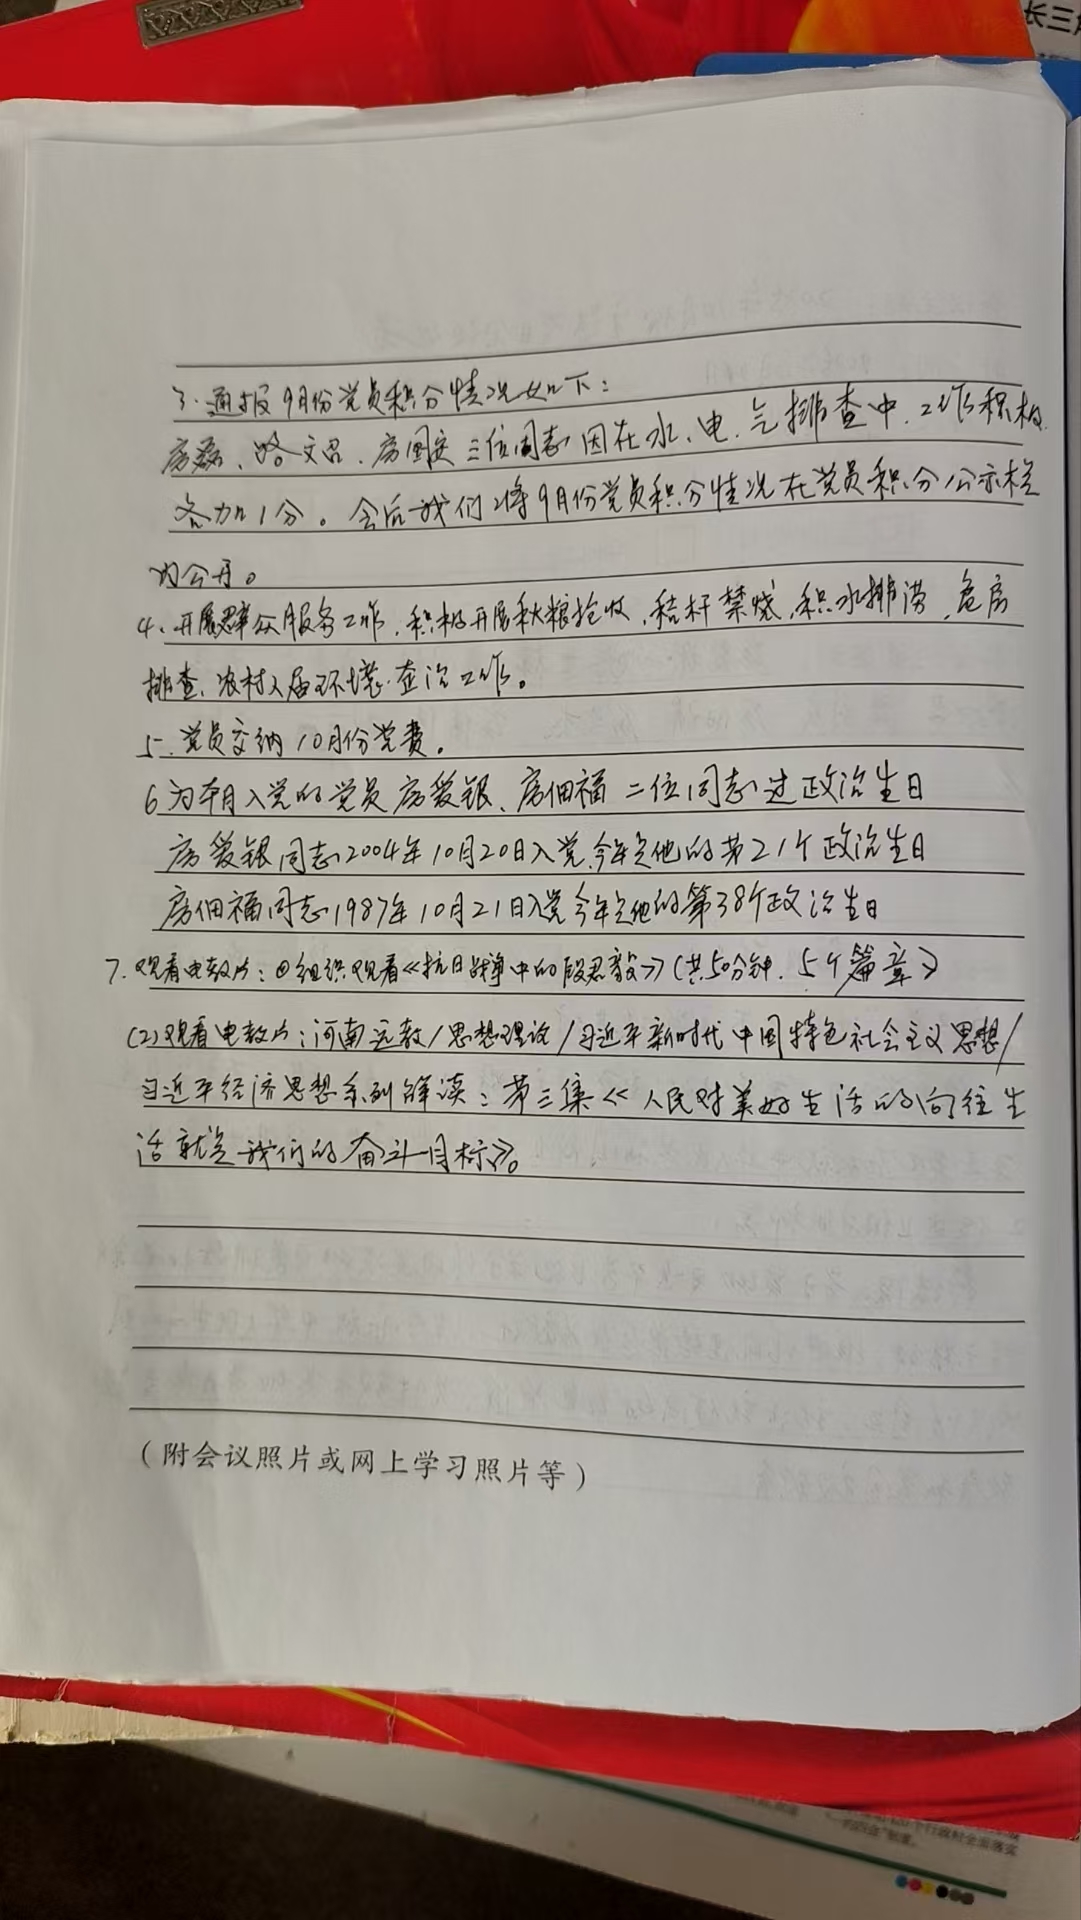 长三角
3.通报9月份党员积分情况如下：
房磊、路文召、房国安三位同志因在水、电、气排查中，工作积极
各加1分。会后我们将9月份党员积分情况在党员积分公示栏
内公开。
4、开展群众服务工作，积极开展秋粮抢收、秸秆禁烧、积水排涝、危房
排查、农村人居环境、查治工作。
5、党员交纳10月份党费。
6为本月入党的党员房爱银、房佃福二位同志过政治生日
房爱银同志2004年10月20日入党，今年是他的第21个政治生日
房佃福同志1987年10月21日入党今年是他的第38个政治生日
7.观看电教片：①组织观看《抗日战争中的段君毅》（共50分钟，5个篇章》
(2)观看电教片：河南远教/思想理论/习近平新时代中国特色社会主义思想/
习近平经济思想系列解读：第三集《人民对美好生活的向往生
活就是我们的奋斗目标》。
（附会议照片或网上学习照片等）